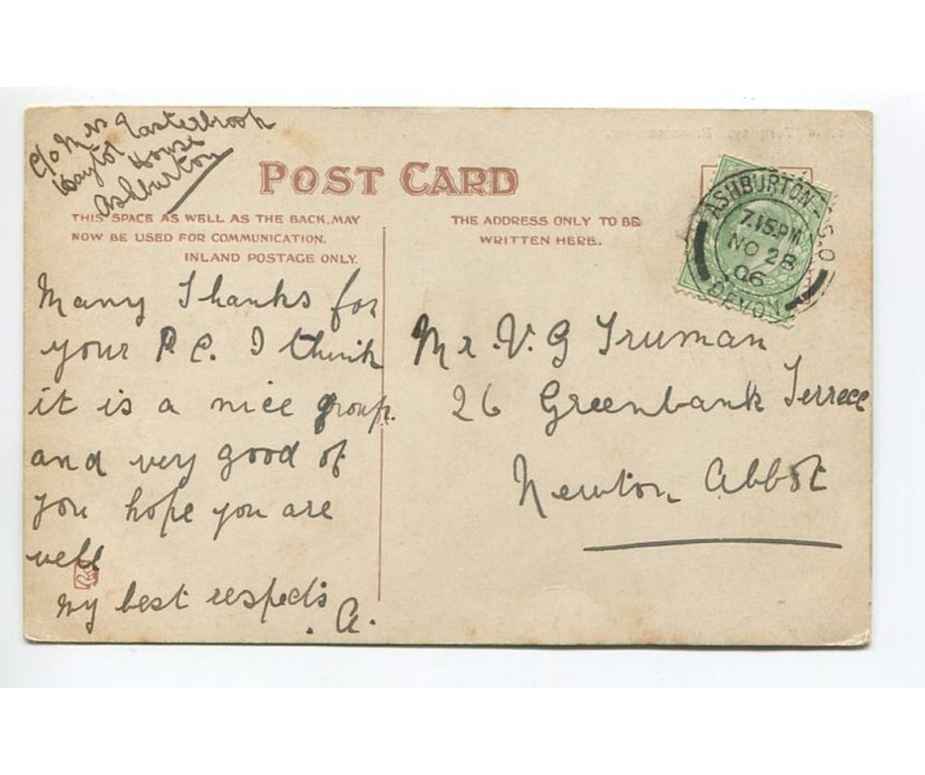 c/o Mrs Easterbrook
Haytor House
Ashburton
POST CARD
THIS SPACE AS WELL AS THE BACK, MAY
NOW BE USED FOR COMMUNICATION.
INLAND POSTAGE ONLY.
THE ADDRESS ONLY TO BE
WRITTEN HERE.
ASHBURTON S.O
7.15.PM
NO 28
06
DEVON
Many Thanks for
your P.C. I think
it is a nice group.
and very good of
you hope you are
well
my best respects
. A.
Mr. V. G Truman
26 Greenbank Terrece
Newton Abbot